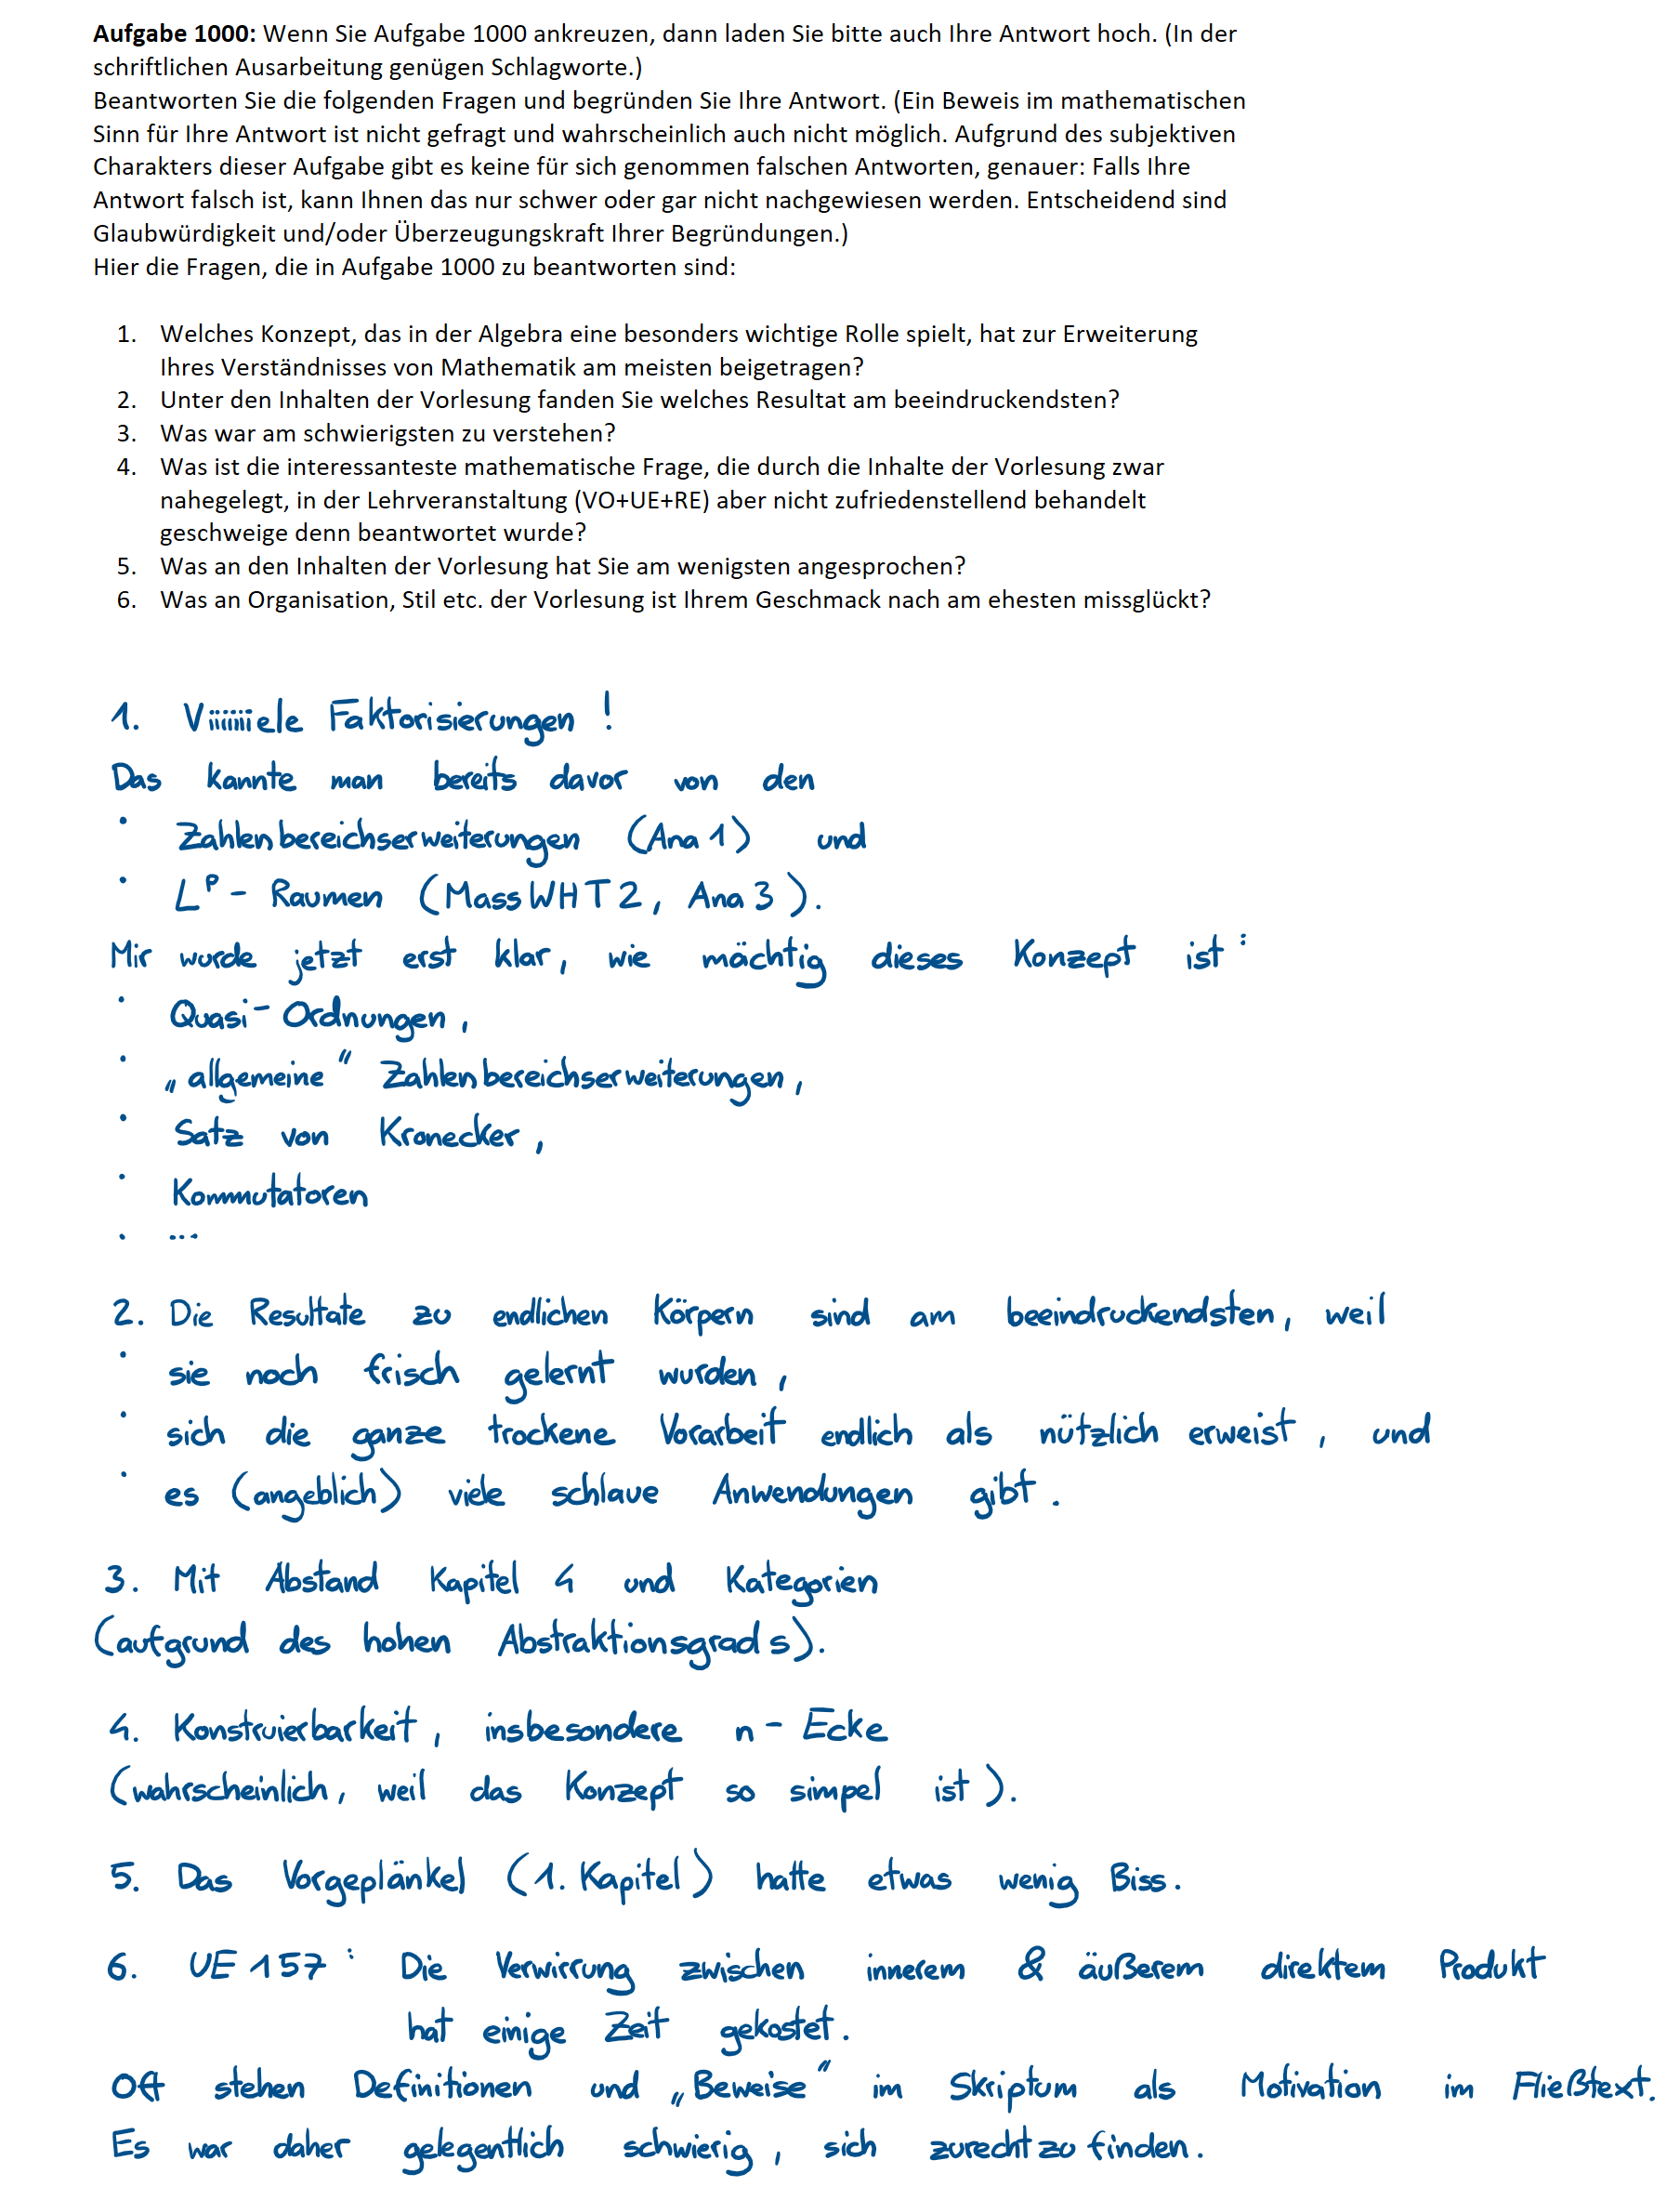 Aufgabe 1000: Wenn Sie Aufgabe 1000 ankreuzen, dann laden Sie bitte auch Ihre Antwort hoch. (In der
schriftlichen Ausarbeitung genügen Schlagworte.)
Beantworten Sie die folgenden Fragen und begründen Sie Ihre Antwort. (Ein Beweis im mathematischen
Sinn für Ihre Antwort ist nicht gefragt und wahrscheinlich auch nicht möglich. Aufgrund des subjektiven
Charakters dieser Aufgabe gibt es keine für sich genommen falschen Antworten, genauer: Falls Ihre
Antwort falsch ist, kann Ihnen das nur schwer oder gar nicht nachgewiesen werden. Entscheidend sind
Glaubwürdigkeit und/oder Überzeugungskraft Ihrer Begründungen.)
Hier die Fragen, die in Aufgabe 1000 zu beantworten sind:
1. Welches Konzept, das in der Algebra eine besonders wichtige Rolle spielt, hat zur Erweiterung
Ihres Verständnisses von Mathematik am meisten beigetragen?
2. Unter den Inhalten der Vorlesung fanden Sie welches Resultat am beeindruckendsten?
3. Was war am schwierigsten zu verstehen?
4. Was ist die interessanteste mathematische Frage, die durch die Inhalte der Vorlesung zwar
nahegelegt, in der Lehrveranstaltung (VO+UE+RE) aber nicht zufriedenstellend behandelt
geschweige denn beantwortet wurde?
5. Was an den Inhalten der Vorlesung hat Sie am wenigsten angesprochen?
6. Was an Organisation, Stil etc. der Vorlesung ist Ihrem Geschmack nach am ehesten missglückt?
1. Viiiiiiiele Faktorisierungen !
Das kannte man bereits davor von den
• Zahlenbereichserweiterungen (Ana 1) und
• L^p - Raumen (Mass WHT 2, Ana 3).
Mir wurde jetzt erst klar, wie mächtig dieses Konzept ist:
• Quasi-Ordnungen,
• „allgemeine" Zahlenbereichserweiterungen,
• Satz von Kronecker,
• Kommutatoren
• ...
2. Die Resultate zu endlichen Körpern sind am beeindruckendsten, weil
• sie noch frisch gelernt wurden,
• sich die ganze trockene Vorarbeit endlich als nützlich erweist, und
• es (angeblich) viele schlaue Anwendungen gibt.
3. Mit Abstand Kapitel 4 und Kategorien
(aufgrund des hohen Abstraktionsgrads).
4. Konstruierbarkeit, insbesondere n-Ecke
(wahrscheinlich, weil das Konzept so simpel ist).
5. Das Vorgeplänkel (1. Kapitel) hatte etwas wenig Biss.
6. UE 157: Die Verwirrung zwischen innerem & äußerem direktem Produkt
hat einige Zeit gekostet.
Oft stehen Definitionen und „Beweise" im Skriptum als Motivation im Fließtext.
Es war daher gelegentlich schwierig, sich zurecht zu finden.